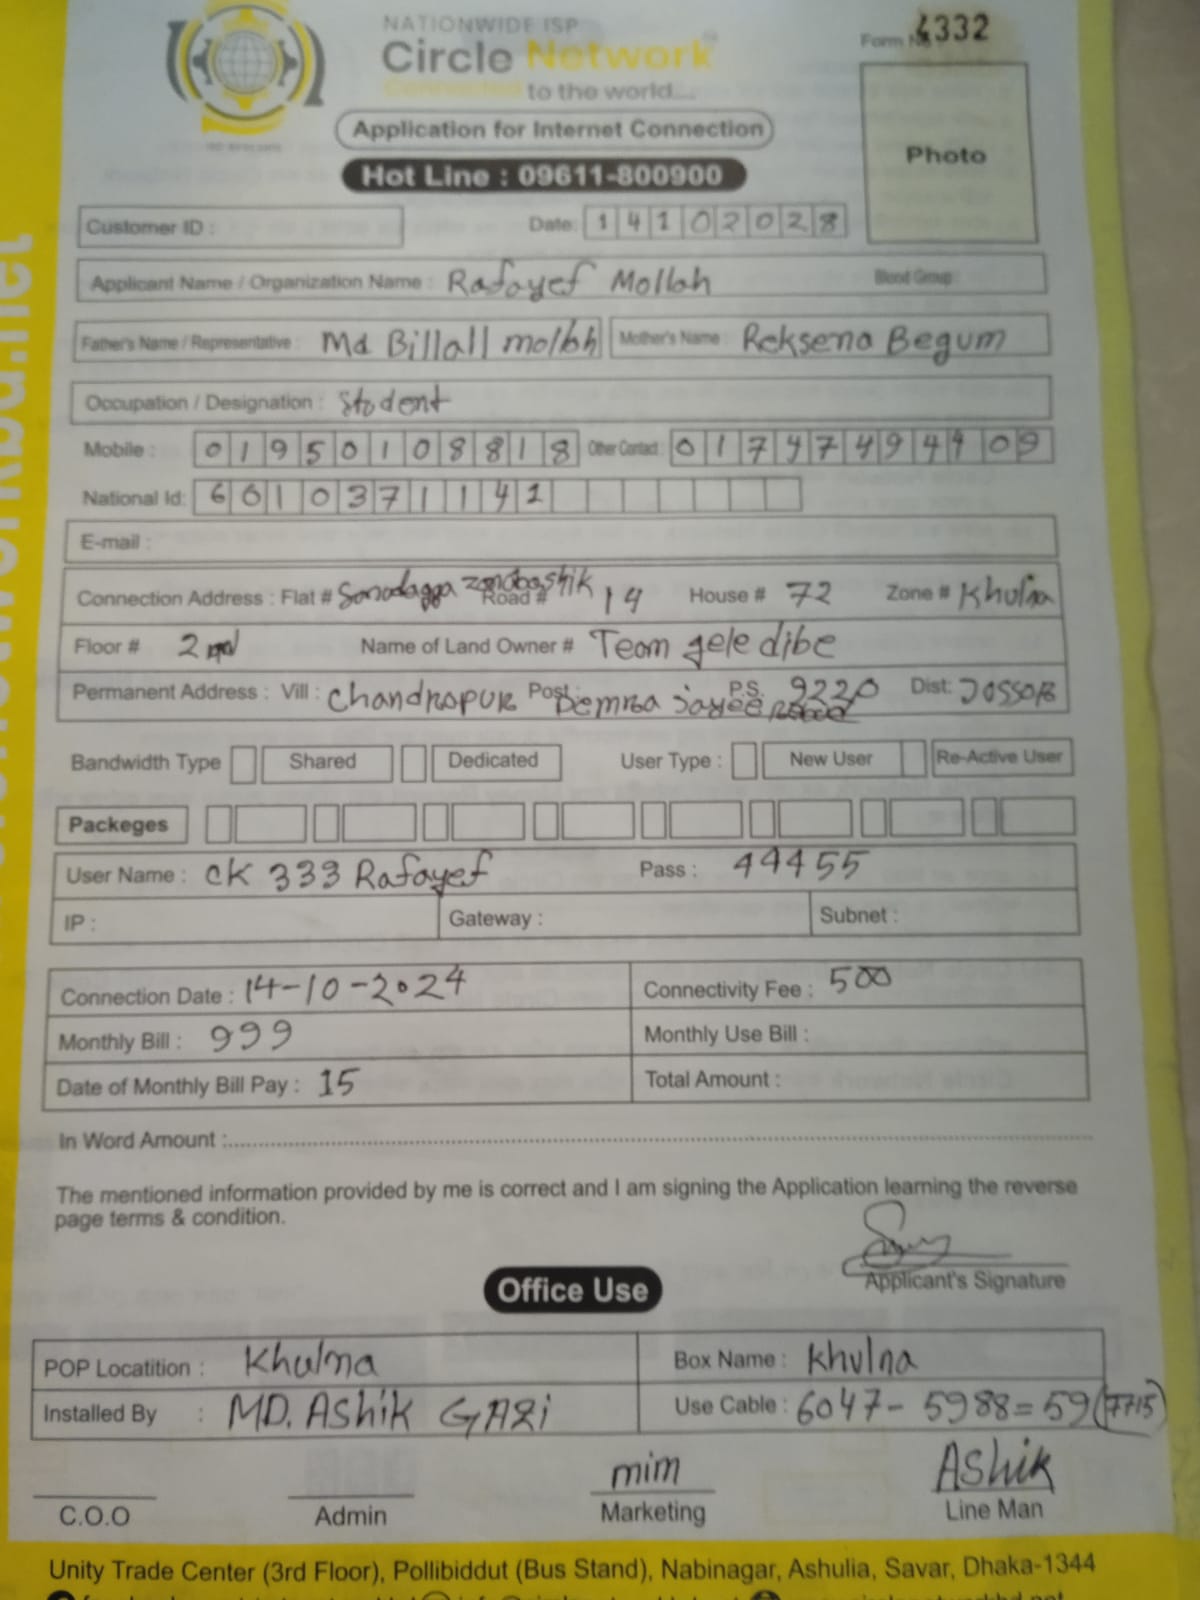 NATIONWIDE ISP
Circle Network
Connected to the world...
Form No 4332
Application for Internet Connection
Photo
Hot Line : 09611-800900
Customer ID : Date: 14102028
Applicant Name / Organization Name : Rafayef Mollah Blood Group :
Father's Name / Representative : Md Billall mollah Mother's Name : Reksena Begum
Occupation / Designation : Stodent
Mobile : 01950108818 Other Contact : 01747494909
National Id: 6610371141
E-mail :
Connection Address : Flat # Sonadagga Road # 14 House # 72 Zone # Khulna
Floor # 2 Name of Land Owner # Team gele dibe
Permanent Address : Vill : Chandrapur Post: Demra P.S. 9220 Dist: Jossor
Bandwidth Type Shared Dedicated User Type : New User Re-Active User
Packeges
User Name : CK 333 Rafayef Pass : 44455
IP : Gateway : Subnet :
Connection Date : 14-10-2024 Connectivity Fee : 500
Monthly Bill : 999 Monthly Use Bill :
Date of Monthly Bill Pay : 15 Total Amount :
In Word Amount :
The mentioned information provided by me is correct and I am signing the Application learning the reverse
page terms & condition.
Applicant's Signature
Office Use
POP Locatition : Khulna Box Name : Khulna
Installed By : MD. Ashik GAZi Use Cable : 6047- 5988=59(7715)
C.O.O Admin mim Marketing Ashik Line Man
Unity Trade Center (3rd Floor), Pollibiddut (Bus Stand), Nabinagar, Ashulia, Savar, Dhaka-1344